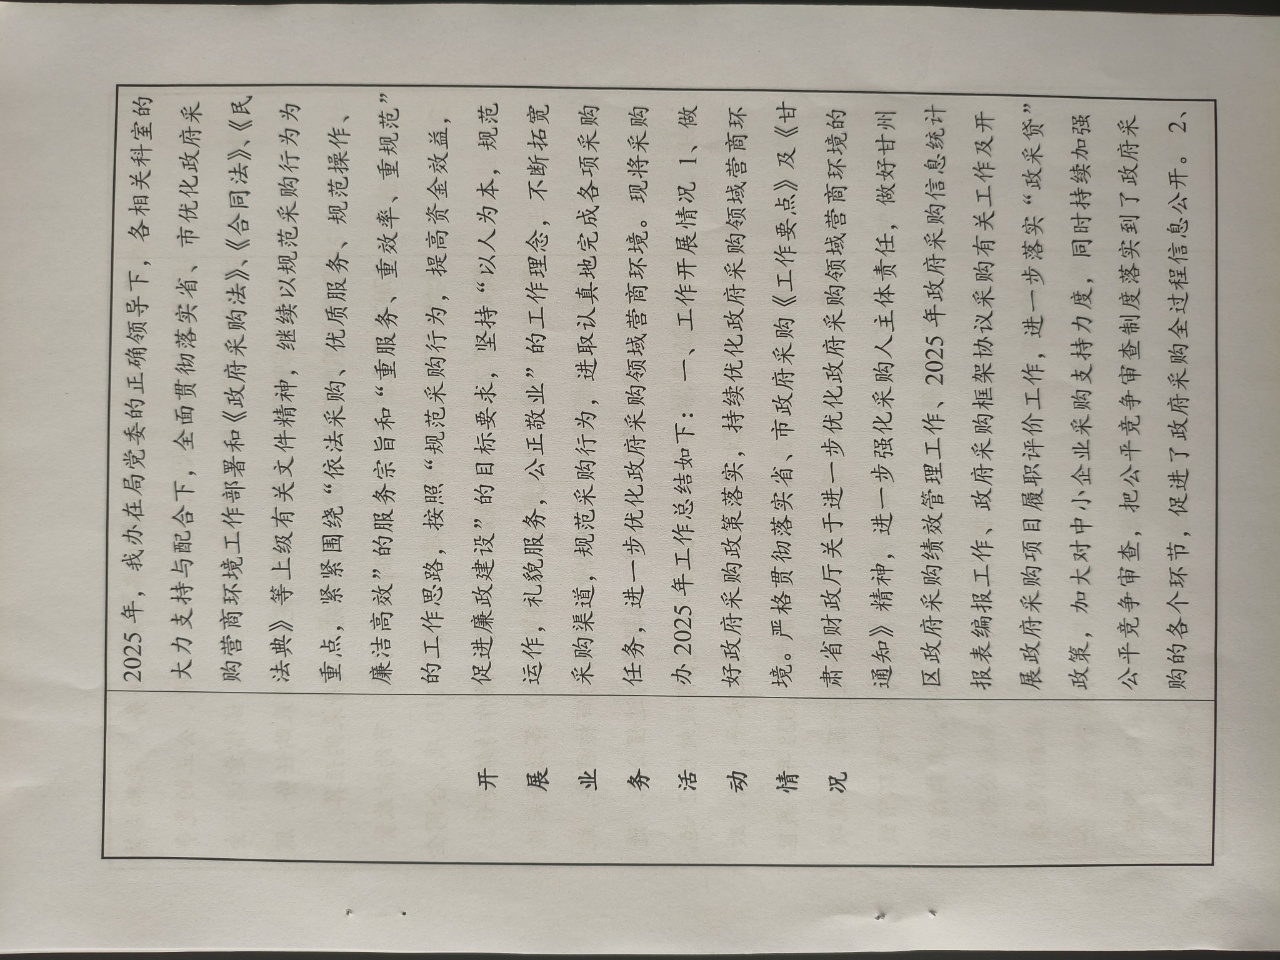 开
展
业
务
活
动
情
况
2025 年，我办在局党委的正确领导下，各相关科室的
大力支持与配合下，全面贯彻落实省、市优化政府采
购营商环境工作部署和《政府采购法》、《合同法》、《民
法典》等上级有关文件精神，继续以规范采购行为为
重点，紧紧围绕“依法采购、优质服务、规范操作、
廉洁高效”的服务宗旨和“重服务、重效率、重规范”
的工作思路，按照“规范采购行为，提高资金效益，
促进廉政建设”的目标要求，坚持“以人为本，规范
运作，礼貌服务，公正敬业”的工作理念，不断拓宽
采购渠道，规范采购行为，进取认真地完成各项采购
任务，进一步优化政府采购领域营商环境。现将采购
办 2025 年工作总结如下：一、工作开展情况 1、做
好政府采购政策落实，持续优化政府采购领域营商环
境。严格贯彻落实省、市政府采购《工作要点》及《甘
肃省财政厅关于进一步优化政府采购领域营商环境的
通知》精神，进一步强化采购人主体责任，做好甘州
区政府采购绩效管理工作、2025 年政府采购信息统计
报表编报工作、政府采购框架协议采购有关工作及开
展政府采购项目履职评价工作，进一步落实“政采贷”
政策，加大对中小企业采购支持力度，同时持续加强
公平竞争审查，把公平竞争审查制度落实到了政府采
购的各个环节，促进了政府采购全过程信息公开。2、